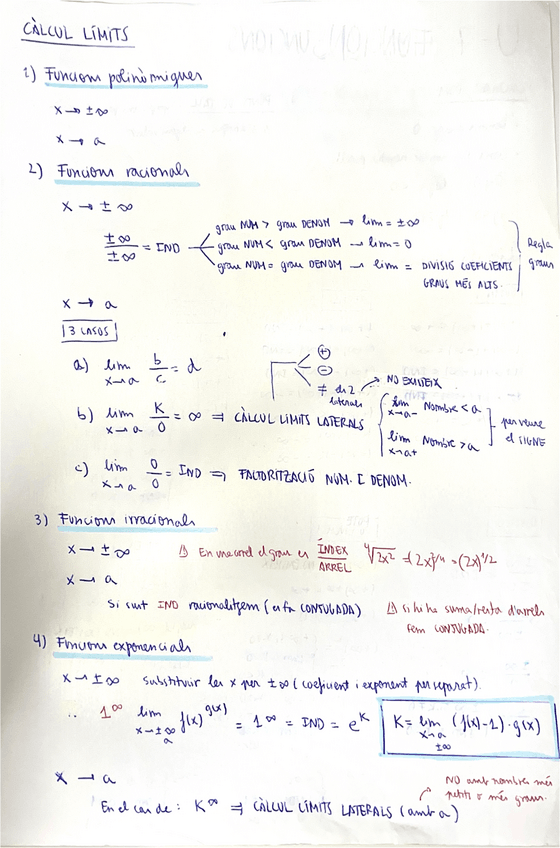 CÀLCUL LÍMITS
1) Funcions polinòmiques
x → ± ∞
x → a
2) Funcions racionals
x → ± ∞
±∞/±∞ = IND
grau NUM > grau DENOM → lim = ± ∞
grau NUM < grau DENOM → lim = 0
grau NUM = grau DENOM → lim = DIVISIÓ COEFICIENTS
GRAUS MÉS ALTS.
Regla
graus
x → a
3 CASOS
a) lim x→a b/c = d
+
-
≠ dr 2 laterals → NO EXISTEIX
b) lim x→a K/0 = ∞ ⇒ CÀLCUL LÍMITS LATERALS
lim x→a- Nombre < a
lim x→a+ Nombre > a
per veure
el SIGNE
c) lim x→a 0/0 = IND ⇒ FACTORITZACIÓ NUM. I DENOM.
3) Funcions irracionals
x → ± ∞ ⚠ En una arrel el grau és ÍNDEX/ARREL ⁴√2x² = (2x)^2/4 = (2x)^1/2
x → a
Si surt IND racionalitzem (es fa CONJUGADA)
⚠ si hi ha suma/resta d'arrels
fem CONJUGADA.
4) Funcions exponencials
x → ± ∞ substituir les x per ± ∞ (coeficient i exponent per separat).
1^∞ lim x→±∞ a f(x)^g(x) = 1^∞ = IND = e^K
K = lim x→a ±∞ (f(x)-1) · g(x)
x → a
NO amb nombres més
petits o més grans.
En el cas de : K^∞ ⇒ CÀLCUL LÍMITS LATERALS (amb a)